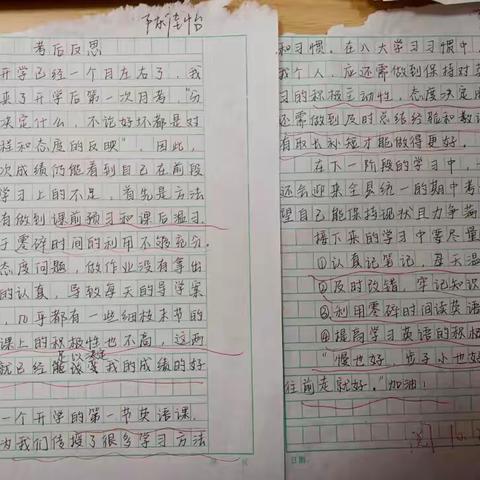 考后反思
开学已经一个月左右了，我
来了开学后第一次月考，“分
决定什么，不论好坏都是对
程和态度的反映”，因此，
次成绩仍能看到自己在前段
学习上的不足，首先是方法
有做到课前预习和课后温习
于零碎时间的利用不够充分。
态度问题，做作业没有拿出
的认真，导致每天的导学案
，几乎都有一些细枝末节的
课上的积极性也不高，这两
就已经足以决定我的成绩的好
一个开学的第一节英语课，
为我们传授了很多学习方法
和习惯。在八大学习习惯中，
我个人，应还需做到保持对英
习的积极主动性，态度决定
还需做到及时总结经验和教训
有取长补短才能做得更好。
在下一阶段的学习中，
还会迎来全县统一的期中考
望自己能保持现状且力争
接下来的学习中要尽量
①认真记笔记，每天温
②及时改错，牢记知识
③利用零碎时间读英语
④提高学习英语的积极
“慢也好，步子小也好
往前走就好。”加油！
日期：